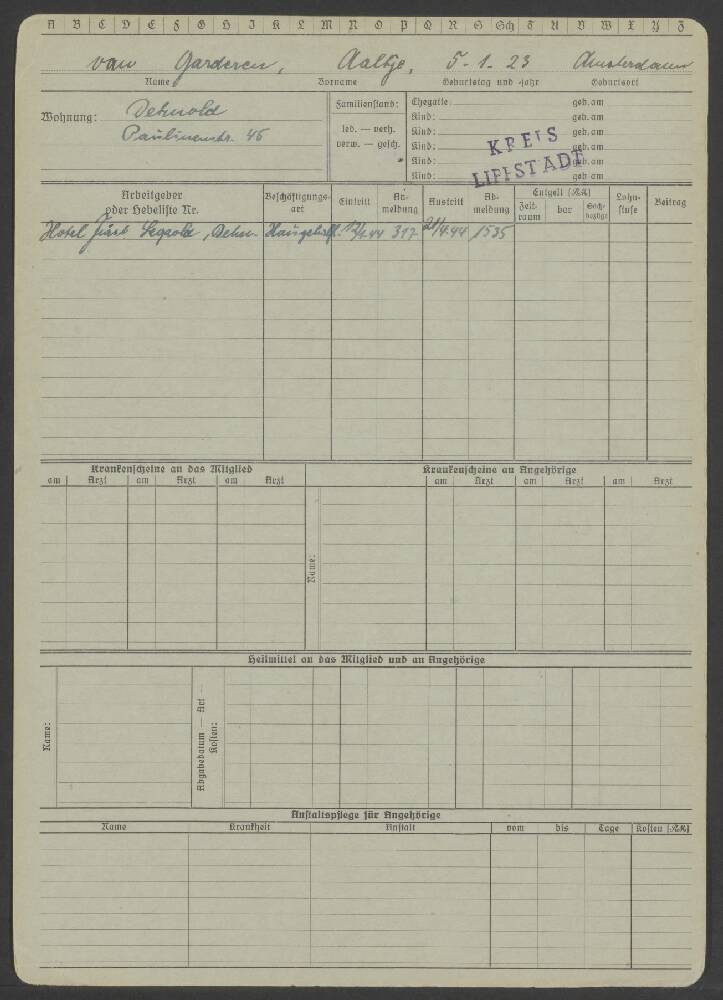 A B C D E F G H I K L M N O P Q R S Sch T U V W X Y Z
van Garderen, Aaltje, 5-1.23 Amsterdam
Name Vorname Geburtstag und -jahr Geburtsort
Wohnung: Detmold
Paulinenstr. 46
Familienstand:
led. — verh.
verw. — gesch.
Ehegatte: geb. am
Kind: geb. am
Kind: geb. am
Kind: geb. am
Kind: geb. am
KREIS
LIPPSTADT
Arbeitgeber oder Hebeliste Nr. Beschäftigungsart Eintritt An-meldung Austritt Ab-meldung Entgelt (RM) Zeit-raum bar Sach-bezüge Lohn-stufe Beitrag
Hotel Fürst Leopold, Detm. Hausgehilf. 12/4.44 317 21/4.44 1535
Krankenscheine an das Mitglied Krankenscheine an Angehörige
am Arzt am Arzt am Arzt am Arzt am Arzt am Arzt
Name:
Heilmittel an das Mitglied und an Angehörige
Name:
Abgabedatum — Art — Kosten:
Anstaltspflege für Angehörige
Name Krankheit Anstalt vom bis Tage Kosten (RM)